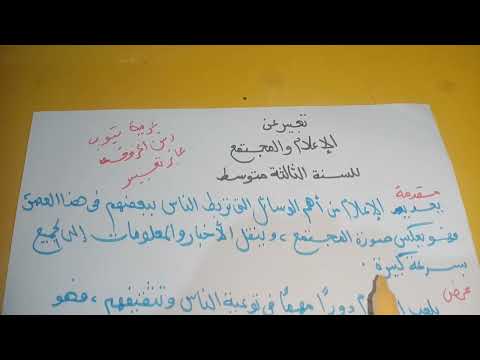 تعبير عن
الإعلام والمجتمع
للسنة الثالثة متوسط
مقدمة
يعد الإعلام من أهم الوسائل التي تربط الناس ببعضهم في هذا العصر
فهو يعكس صورة المجتمع، وينقل الأخبار والمعلومات إلى الجميع
بسرعة كبيرة.
عرض
يلعب دورًا مهمًا في توعية الناس وتثقيفهم، فهو